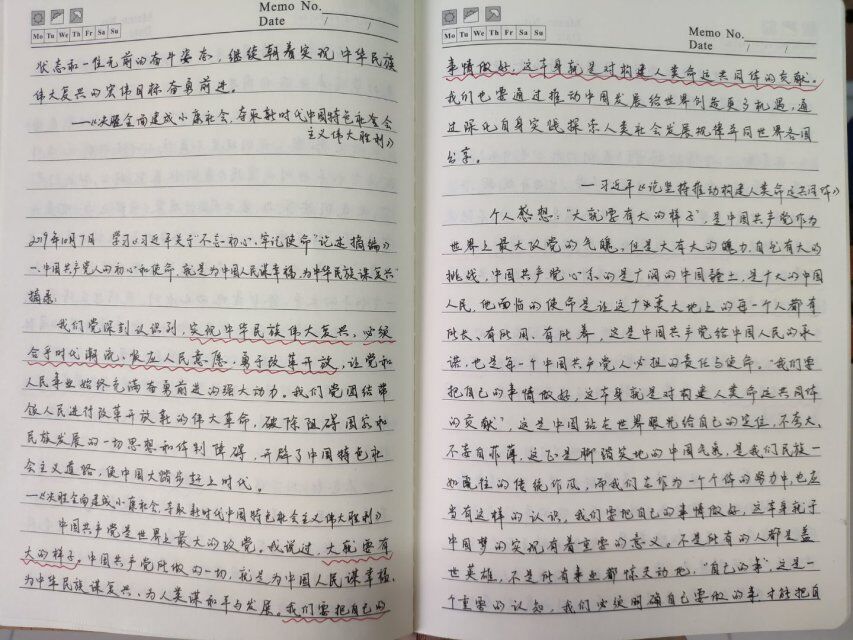 Memo No.
Mo Tu We Th Fr Sa Su
Date / /
状态和一往无前的奋斗姿态，继续朝着实现中华民族
伟大复兴的宏伟目标奋勇前进。
——《决胜全面建成小康社会，夺取新时代中国特色社会
主义伟大胜利》
2019年10月7日 学习《习近平关于"不忘初心、牢记使命"论述摘编》
一、中国共产党人的初心和使命，就是为中国人民谋幸福，为中华民族谋复兴"
摘录
我们党深刻认识到，实现中华民族伟大复兴，必须
合乎时代潮流、顺应人民意愿，勇于改革开放，让党和
人民事业始终充满奋勇前进的强大动力。我们党团结带
领人民进行改革开放新的伟大革命，破除阻碍国家和
民族发展的一切思想和体制障碍，开辟了中国特色社
会主义道路，使中国大踏步赶上时代。
——《决胜全面建成小康社会，夺取新时代中国特色社会主义伟大胜利》
中国共产党是世界上最大的政党。我说过，大就要有
大的样子。中国共产党所做的一切，就是为中国人民谋幸福，
为中华民族谋复兴、为人类谋和平与发展。我们要把自己的
Memo No.
Mo Tu We Th Fr Sa Su
Date / /
事情做好，这本身就是对构建人类命运共同体的贡献。
我们也要通过推动中国发展给世界创造更多机遇，通
过深化自身实践探索人类社会发展规律并同世界各国
分享。
—习近平《论坚持推动构建人类命运共同体》
个人感想："大就要有大的样子"，是中国共产党作为
世界上最大政党的气魄，但是大有大的魄力，自也有大的
挑战，中国共产党心系的是广阔的中国疆土，是广大的中国
人民，他面临的使命是让这广袤大地上的每一个人都有
所长、有所用、有所养，这是中国共产党给中国人民的承
诺，也是每一个中国共产党人必担的责任与使命。"我们要
把自己的事情做好，这本身就是对构建人类命运共同体
的贡献"，这是中国站在世界眼光给自己的定位，不夸大、
不妄自菲薄，这正是脚踏实地的中国气质，是我们民族一
如既往的传统作风，而我们在作为一个个体的努力中，也应
当有这样的认识，我们要把自己的事情做好，这本身就于
中国梦的实现有着重要的意义。不是所有的人都是盖
世英雄，不是所有事业都惊天动地，"自己的事"，这是一
个重要的认知，我们必须明确自己要做的事，才能把自